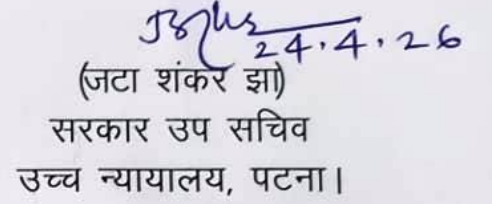 24.4.26
(जटा शंकर झा)
सरकार उप सचिव
उच्च न्यायालय, पटना।